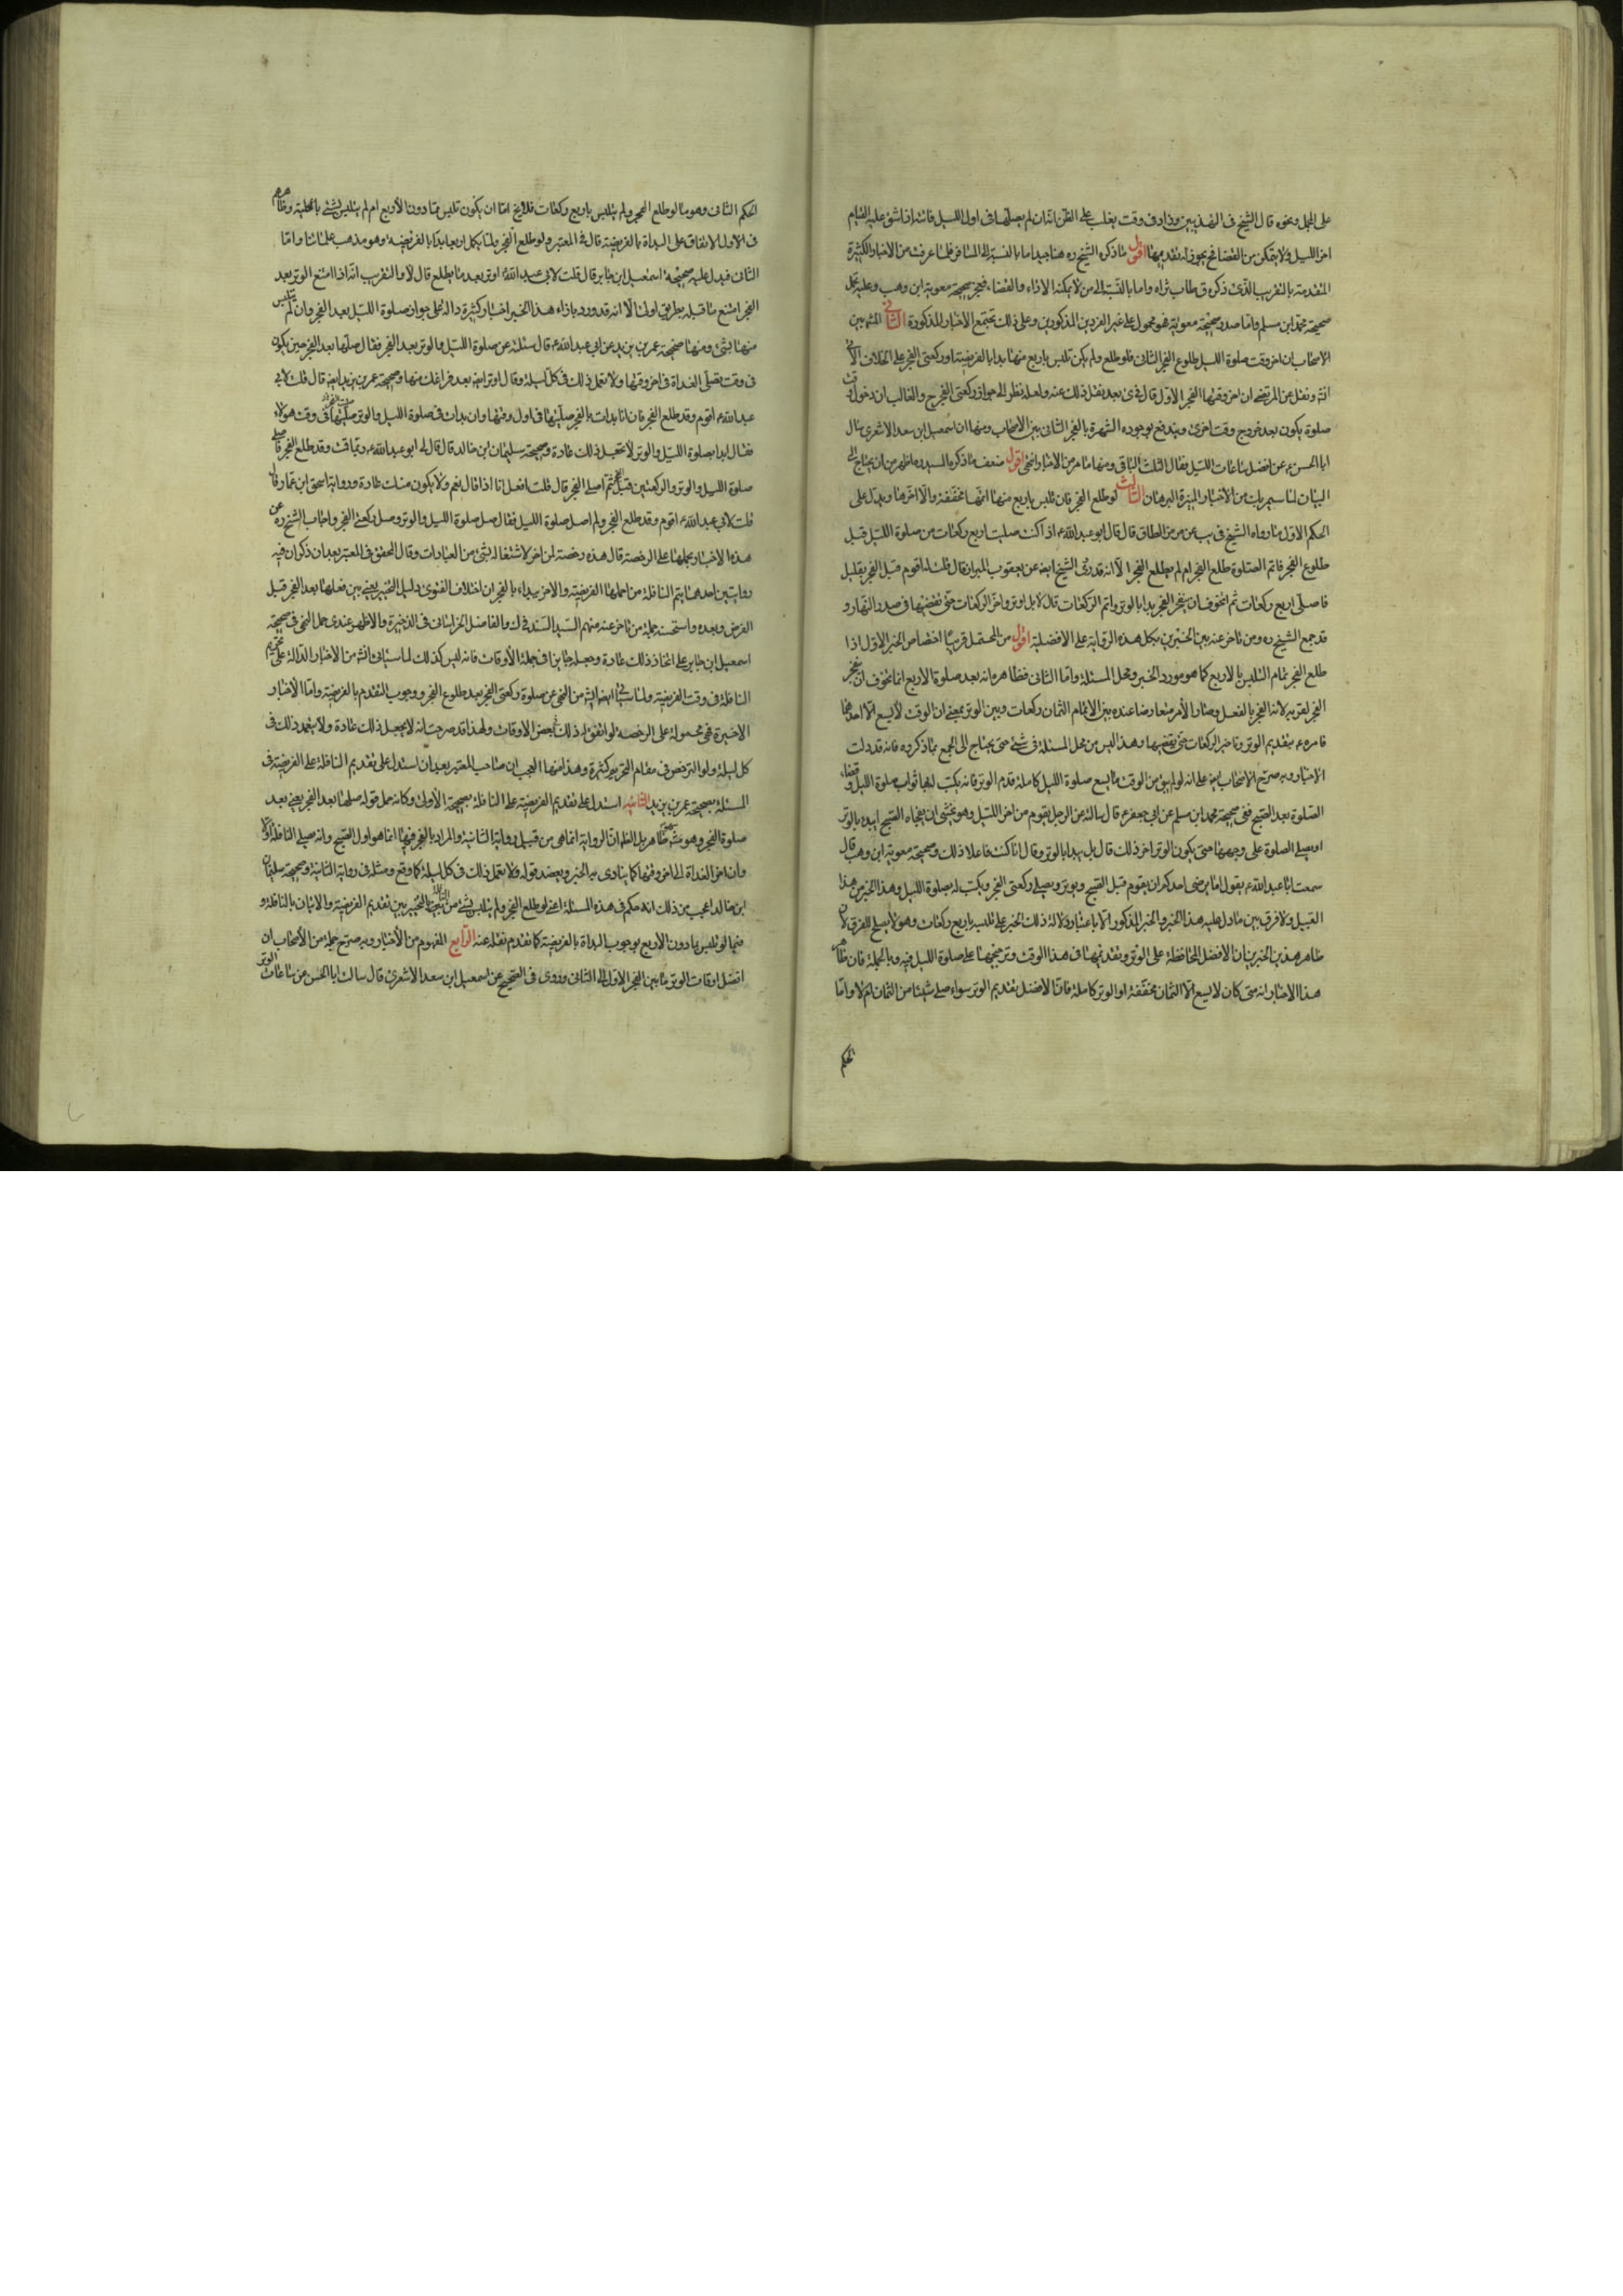 على المحل ونحوه قال الشيخ في التهذيبين وفي وقت يغلب على الظن انه ان لم يصلها في اول الليل فاتته اذا شق عليه القيام
اخر الليل ولا يتمكن من القضاء فح يجوز له تقديمها اقول ما ذكره الشيخ ره هنا جيد اما بالنسبة الى المسافر فلما عرفت من الاخبار الكثيرة
المتقدمة بالتقريب الذي ذكره واما بالنسبة الى من لا يمكنه الاداء والقضاء فخبر صحيحة معوية ابن وهب وعليه يحمل
صحيحة محمد ابن مسلم واما صدر صحيحة معوية فهو محمول على غير الفردين المذكورين وعلى ذلك تجتمع الاخبار المذكورة الثاني المشهور بين
الاصحاب ان اخر وقت صلوة الليل طلوع الفجر الثاني فلو طلع ولم يكن تلبس باربع منها بدا بالفريضة او ركعتي الفجر على الخلاف الاتي
انش ونقل عن المرتضى ان اخر وقتها الفجر الاول قال في بعد نقل ذلك عنه ولعله نظر الى جواز ركعتي الفجر ح والغالب ان دخول وقت
صلوة يكون بعد خروج وقت اخرى ويندفع بوجوده الشهرة بالفجر الثاني بين الاصحاب ومنها ان اسمعيل ابن سعد الاشعري سال
ابا الحسن ع عن افضل ساعات الليل فقال الثلث الباقي ومنها ما مر من الاخبار انتهى اقول ضعف ما ذكره السيد ره اظهر من ان يحتاج الى
البيان لما سيمر بك من الاخبار النيرة البرهان الثالث لو طلع الفجر فان تلبس باربع منها اتمها مخففة والا اخرها ويدل على
الحكم الاول ما رواه الشيخ في يب عن مؤمن الطاق قال قال ابو عبد الله ع اذا كنت صليت اربع ركعات من صلوة الليل قبل
طلوع الفجر فاتم الصلوة طلع الفجر ام لم يطلع الفجر الا انه قد روى الشيخ ايض عن يعقوب البزاز قال قلت له اقوم قبل الفجر بقليل
فاصلي اربع ركعات ثم اتخوف ان ينفجر الفجر ابدا بالوتر او اتم الركعات قال لا بل اوتر واخر الركعات حتى تقضيها في صدر النهار و
قد جمع الشيخ ره ومن تاخر عنه بين الخبرين بحمل هذه الرواية على الافضلية اقول من المحتمل قريبا اختصاص الخبر الاول اذا
طلع الفجر بتمام التلبس بالاربع كما هو مورد الخبر ومحل المسئلة واما الثاني فظاهره انه بعد صلوة الاربع انما تخوف ان ينفجر
الفجر لقربه لا انه انفجر بالفعل وصار الامر متعارضا عنده بين الاتمام الثمان ركعات وبين الوتر بمعنى ان الوقت لا يسع الا احدهما
فامره ع بتقديم الوتر وتاخير الركعات حتى يقضيها وهذا ليس من محل المسئلة في شئ حتى يحتاج الى الجمع بما ذكروه فانه قد دلت
الاخبار وبه صرح الاصحاب ايض على انه لو لم يبق من الوقت ما يسع صلوة الليل كاملة قدم الوتر فانه يكتب له بها ثواب صلوة الليل وقضاء
الصلوة بعد الصبح ففي صحيحة محمد ابن مسلم عن ابي جعفر ع قال سالته عن الرجل يقوم من اخر الليل وهو يخشى ان يفجاه الصبح ايبدء بالوتر
او يصلي الصلوة على وجهها حتى يكون الوتر اخر ذلك قال بل يبدا بالوتر وقال انا كنت فاعلا ذلك وصحيحة معوية ابن وهب قال
سمعت ابا عبد الله ع يقول اما يرضى احدكم ان يقوم قبل الصبح ويوتر ويصلي ركعتي الفجر ويكتب له بصلوة الليل وهذا الخبر من هذا
القبيل ولا فرق بين ما دل عليه هذا الخبر والخبر المذكور الا باعتبار دلالة ذلك الخبر على تلبسه باربع ركعات وهو لا يصلح للفرق لان
ظاهر هذين الخبرين ان الافضل المحافظة على الوتر وتقديمها في هذا الوقت وترجيحها على صلوة الليل فيه وبالجملة فان ظاهر
هذا الاخبار انه متى كان لا يسع الا الثمان مخففة او الوتر كاملة فان الافضل تقديم الوتر سواء صلى شيئا من الثمان ام لا واما
الحكم
الحكم الثاني وهو ما لو طلع الفجر ولم يتلبس باربع ركعات فلا يخ اما ان يكون تلبس بما دون الاربع ام لم يتلبس بشئ بالكلية وظاهرهم
في الاول الاتفاق على البداة بالفريضة قال في المعتبر ولو طلع الفجر ولما يكمل اربعا بدا بالفريضة وهو مذهب علمائنا واما
الثاني فيدل عليه صحيحة اسمعيل ابن جابر قال قلت لابي عبد الله ع اوتر بعد ما يطلع قال لا والتقريب انه اذا امتنع الوتر بعد
الفجر امتنع ما قبله بطريق اولى الا انه قد ورد بازاء هذا الخبر اخبار كثيرة دالة على جواز صلوة الليل بعد الفجر وان لم يتلبس
منها بشئ ومنها صحيحة عمر بن يزيد عن ابي عبد الله ع قال سئلته عن صلوة الليل والوتر بعد الفجر فقال صلها بعد الفجر حين يكون
في وقت تصلي الغداة في اخر وقتها ولا تعمل ذلك في كل ليلة وقال اوتر ايض بعد فراغك منها وصحيحة عمر بن يزيد ايض قال قلت لابي
عبد الله ع اقوم وقد طلع الفجر فان انا بدات بالفجر صليتها في اول وقتها وان بدات في صلوة الليل والوتر صليت الفجر في وقت هؤلاء
فقال ابدا بصلوة الليل والوتر لا تجعل ذلك عادة وصحيحة سليمان ابن خالد قال قال لي ابو عبد الله ع ربما قمت وقد طلع الفجر فاصلي
صلوة الليل والوتر والركعتين قبل الفجر ثم اصلي الفجر قال قلت افعل انا اذا قال نعم ولا يكون منك عادة ورواية اسحق ابن عمار قال
قلت لابي عبد الله ع اقوم وقد طلع الفجر ولم اصل صلوة الليل فقال صل صلوة الليل والوتر وصل ركعتي الفجر واجاب الشيخ ره عن
هذه الاخبار بحملها على الرخصة قال هذه رخصة لمن اخر لاشتغاله بشئ من العبادات وقال المحقق في المعتبر بعد ان ذكر ان فيه
روايتين احدهما يتم النافلة مزاحما بها الفريضة والاخر يبداء بالفجر ان اختلاف الفتوى دليل التخيير يعني بين فعلها بعد الفجر قبل
الفرض وبعده واستحسنه جملة من تاخر عنه منهم السيد السند في ك والفاضل الخراساني في الذخيرة والاظهر عندي حمل النهي في صحيحة
اسمعيل ابن جابر على اتخاذ ذلك عادة وجعله جايزا في جملة الاوقات فانه ليس كذلك لما سياتي انش من الاخبار الدالة على تحريم
النافلة في وقت الفريضة ولما سياتي ايضا انش من النهي عن صلوة ركعتي الفجر بعد طلوع الفجر ووجوب التقدم بالفريضة واما الاخبار
الاخيرة فهي محمولة على الرخصة لو اتفق له ذلك بعض الاوقات ولهذا قد صرحت انه لا يجعل ذلك عادة ولا يتعمد ذلك في
كل ليلة والترخص في مقام التحريم كثيرة وهذا منها العجب ان صاحب المعتبر بعد ان استدل على تقديم النافلة على الفريضة في
المسئلة بصحيحة عمر بن يزيد الثانية استدل على تقديم الفريضة على النافلة بصحيحة الاولى وكانه حمل قوله صلها بعد الفجر يعني بعد
صلوة الفجر وهو سهو ظاهر بل الظاهر ان الرواية انما هي من قبيل رواية الثانية والمراد بالفجر فيها انما هو اول الصبح وانه يصلي النافلة اولا
وان اخر الغداة الى اخر وقتها كما ينادي به الخبر ويعضده قوله ولا تعمل ذلك في كل ليلة كما وقع ومثله في رواية الثانية وصحيحة سليمان
ابن خالد اعجب من ذلك انه حكم في هذه المسئلة اعني لو طلع الفجر ولم يتلبس بشئ من النافلة بالتخيير بين تقديم الفريضة والاتيان بالنافلة و
فيما لو تلبس بما دون الاربع بوجوب البداة بالفريضة كما تقدم نقله عنه الرابع المفهوم من الاخبار وبه صرح جملة من الاصحاب ان
افضل اوقات الوتر ما بين الفجر الاول الى الثاني وروى في الصحيح عن اسمعيل ابن سعد الاشعري قال سالت ابا الحسن عن ساعات الوتر